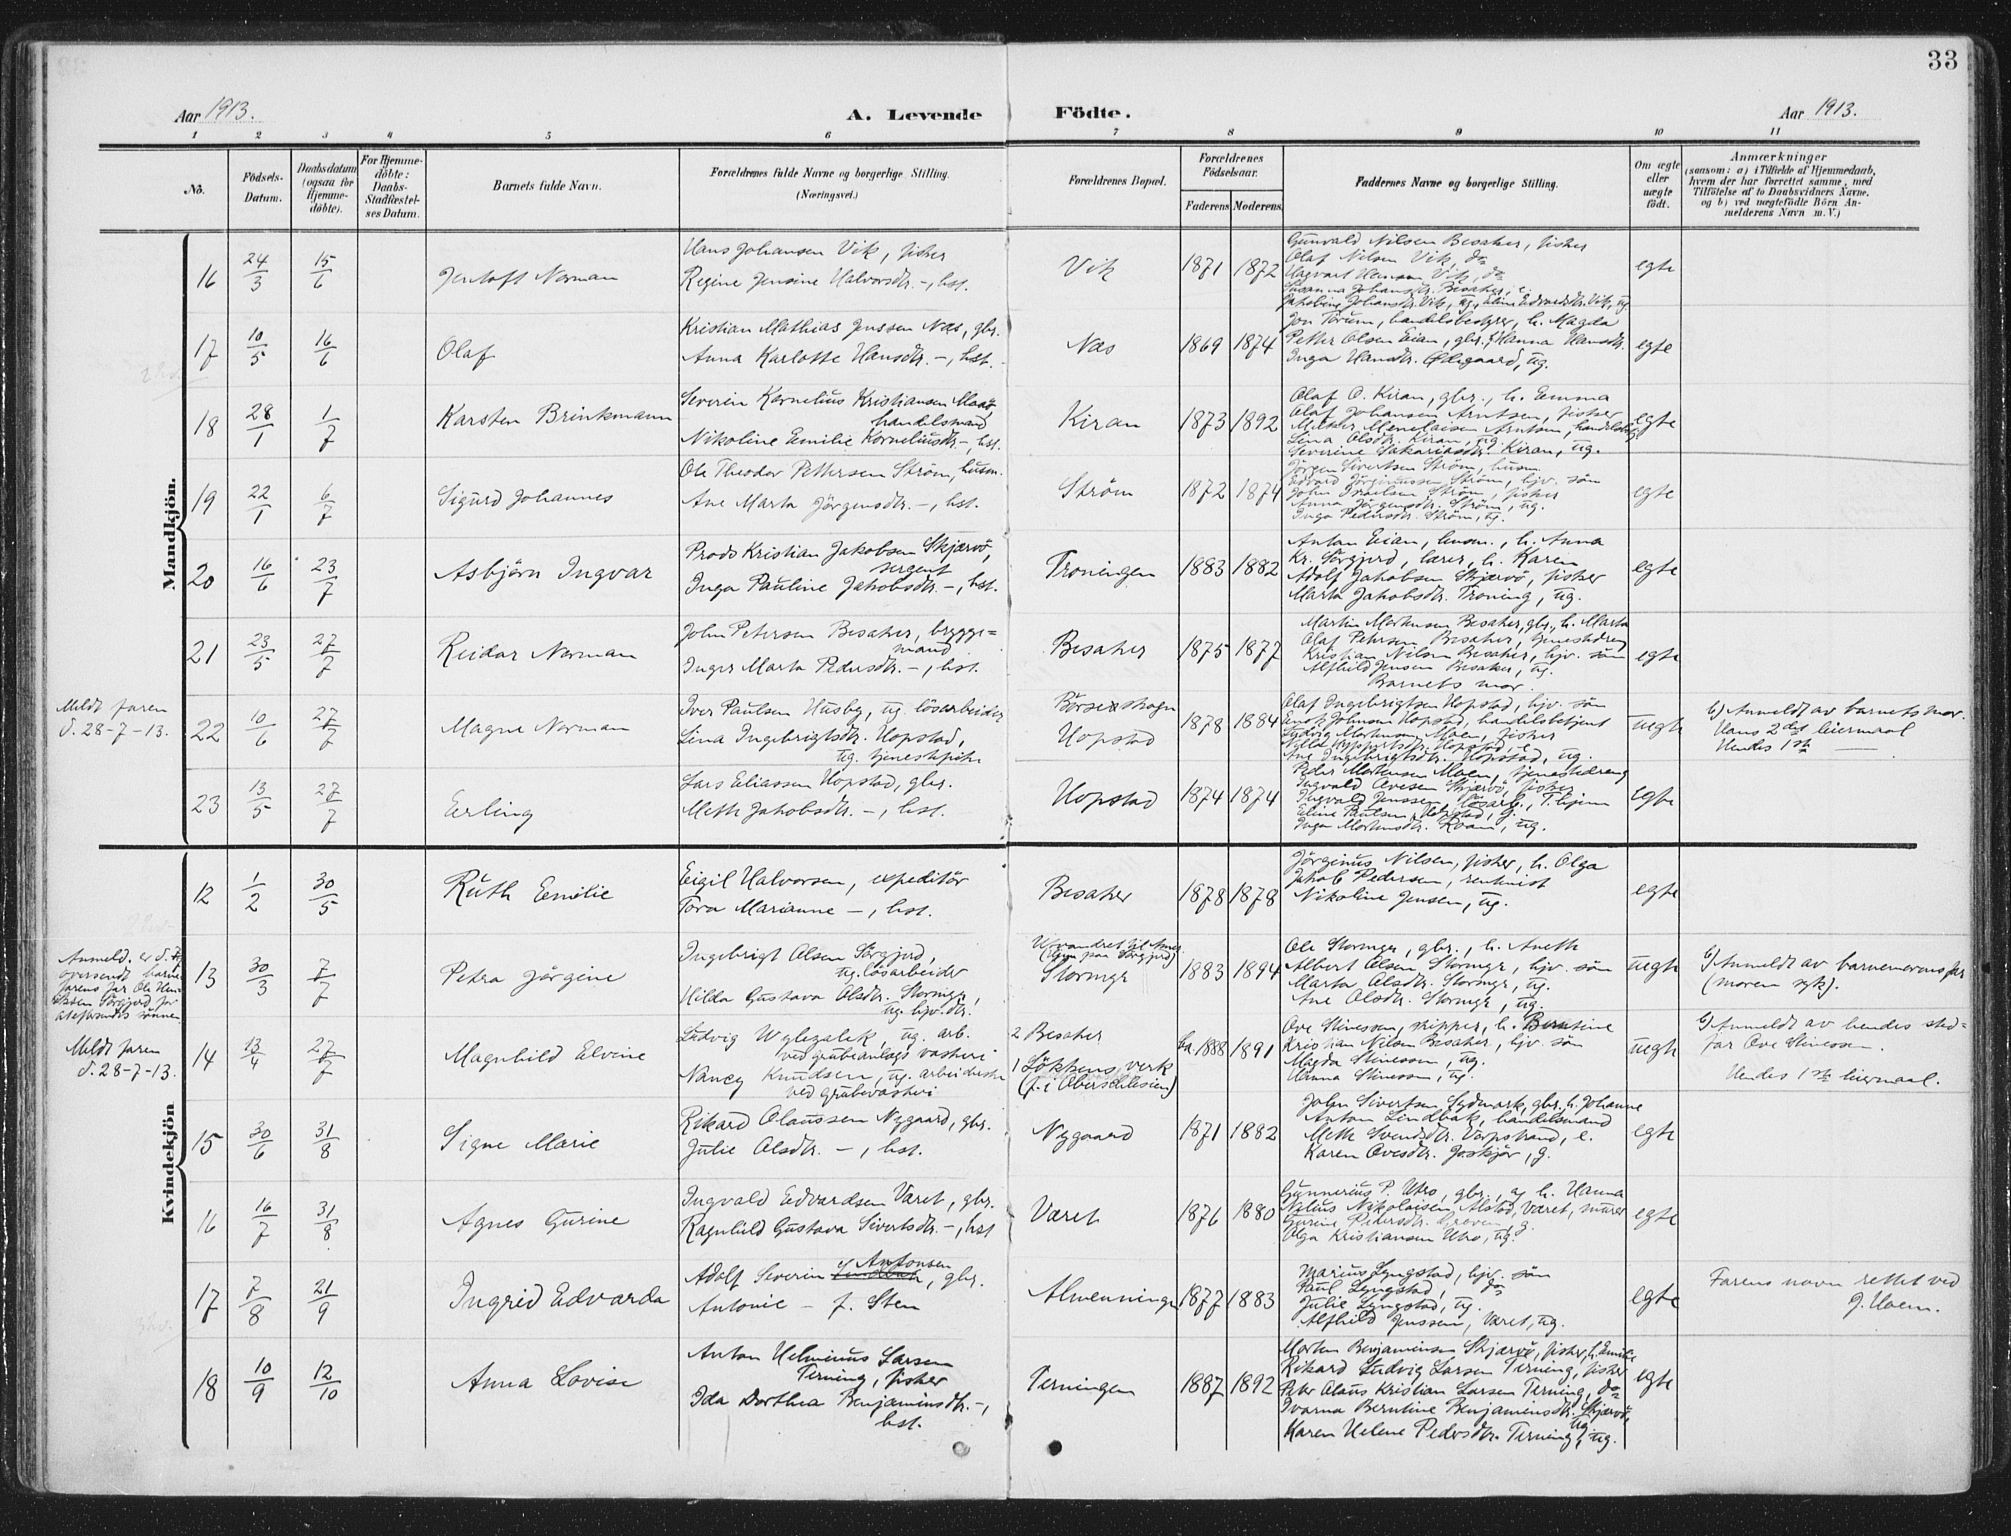 33
Aar 1913. A. Levende Födte. Aar 1913.
1 2 3 4 5 6 7 8 9 10 11
No.
Födsels-Datum.
Daabsdatum (ogsaa for Hjemme-döbte).
For Hjemme-döbte: Daabs-Stadfæstel-ses Datum.
Barnets fulde Navn.
Forældrenes fulde Navne og borgerlige Stilling.
(Næringsvei.)
Forældrenes Bopæl.
Forældrenes Födselsaar.
Faderens. Moderens.
Faddernes Navne og borgerlige Stilling.
Om ægte eller uægte födt.
Anmærkninger
(saasom: a) i Tilfælde af Hjemmedaab,
hvem der har forrettet samme, med
Tilföielse af to Daabsvidners Navne.
og b) ved uægtefödte Börn An-
melderens Navn m. V.)
Mandkjön.
16 24/3 15/6 Jentoft Norman
Hans Johansen Vik, fisker
Regine Jensine Halvorsdtr. -, hst.
Vik 1871 1872
Gunvald Nilsen Besaker, fisker
Olaf Nilsen Vik, do
Hagvart Hansen Vik, do
Susanna Johansdtr. Besaker, e.
Jakobine Johansdtr. Vik, ug., Eline Edvardsdtr. Vik, ug.
egte
17 10/5 16/6 Olaf
Kristian Mathias Jenssen Næs, gbr.
Anna Karlotte Hansdtr. -, hst.
Næs 1869 1874
Jon Torum, handelsbestyrer, h. Magda
Petter Olsen Eian, gbr., Hanna Hansdtr.
Inga Hansdtr. Ødegaard, ug.
egte
18 28/1 1/7 Karsten Brinkmann
Severin Kornelius Kristiansen
handelsmand
Nikoline Emilie Korneliusdtr. -, hst.
Kiran 1873 1892
Olaf O. Kiran, gbr., h. Emma
Olaf Johansen Arntsen, fisker
Meier Menelaisen Arntsen,
Lina Olsdtr. Kiran, ug.
Severine Sakariasdtr. Kiran, ug.
egte
19 22/1 6/7 Sigurd Johannes
Ole Theodor Pettersen Ström, husm.
Ane Marta Jörgensdtr. -, hst.
Ström 1872 1874
Jörgen Sivertsen Ström, husm.
Edvard Jörginussen Ström, hjv. sön
John Israelsen Ström, fisker
Anna Jörgensdtr. Ström, ug.
Inga Pedersdtr. Ström, ug.
egte
20 16/6 23/7 Asbjörn Ingvar
Prods Kristian Jakobsen Skjærvö,
sergent
Inga Pauline Jakobsdtr. -, hst.
Troningen 1883 1882
Anton Eian, husm., h. Anna
Kr. Sörgjerd, lærer, h. Karen
Adolf Jakobsen Skjærvö, fisker
Marta Jakobsdtr. Troning, ug.
egte
21 23/5 27/7 Reidar Norman
John Petersen Besaker, brygge=
mand
Inger Marta Pedersdtr. -, hst.
Besaker 1875 1877
Martin Mortensen Besaker, gbr., h. Marta
Olaf Petersen Besaker, tjenestedreng
Kristian Nilsen Besaker, hjv. sön
Alfhild Jensen Besaker, ug.
Barnets mor.
egte
Meldt faren
d. 28-7-13.
22 10/6 27/7 Magne Norman
Iver Paulsen Husby, ug. lösarbeider
Lina Ingebrigtsdtr. Hopstad,
ug. tjenestepike
Börseskogn
Hopstad 1878 1884
Olaf Ingebrigtsen Hopstad, hjv. sön
Enok Johnsen Hopstad, handelsbetjent
Ludvig Mortensen Moen, fisker
Hopstad, e
Ane Ingebrigtsdtr. Hopstad, ug.
uegte
b) Anmeldt av barnets mor.
Hans 2det leiermaal
Hendes 1ste —
23 13/5 27/7 Erling
Lars Eliassen Hopstad, gbr.
Meth Jakobsdtr. -, hst.
Hopstad 1874 1874
Peder Mortensen Moen, tjenestedreng
Ingvald Ovesen Skjærvö, fisker
Ingvald Jenssen, lösarb., T.hjem
Eline Paulsen, Hopstad, g.
Inga Mortensdtr. Roan, ug.
egte
Kvindekjön
12 1/2 30/5 Ruth Emilie
Eigil Halvorsen, expeditör
Tora Marianne -, hst.
Besaker 1878 1878
Jörginus Nilsen, fisker, h. Olga
Jakob Pedersen, rentenist
Nikoline Jensen, ug.
egte
Anmeld. er d.
oversendt barne
farens far Ole
Sörgjerd for
sönnen
13 30/3 7/7 Petra Jörgine
Ingebrigt Olsen Sörgjerd,
ug. lösarbeider
Hilda Gustava Olsdtr. Stormyr,
ug. hjv. dtr.
Utvandret til Amer.
(hjem paa Sörgjerd)
Stormyr 1883 1894
Ole Stormyr, gbr., h. Aneth
Albert Olsen Stormyr, hjv. sön
Marta Olsdtr. Stormyr, ug.
Ane Olsdtr. Stormyr, ug.
uegte
b) Anmeldt av barnemorens far
(moren syk).
Meldt faren
d. 28-7-13.
14 13/4 27/7 Magnhild Elvine
Ludvig Wglegalek, ug. arb.
ved grubeanlægs vaskeri
Nancy Knudsen, ug. arbeiderske
ved grubevaskeri
2 Besaker
1 Lökkens verk
(f. i Oberschlesien)
ca. 1888 1891
Ove Stinessen, skipper, h. Berntine
Kristian Nilsen Besaker, hjv. sön
Magda Stinessen, ug.
Hanna Stinessen, ug.
uegte
b) Anmeldt av hendes sted=
far Ove Stinessen.
Hendes 1ste leiermaal.
15 30/6 31/8 Signe Marie
Rikard Olaussen Nygaard, gbr.
Julie Olsdtr. -, hst.
Nygaard 1871 1882
John Sivertsen Sydmark, gbr., h. Johanne
Anton Lindbak, handelsmand
Meth Svendsdtr. Vorpstrand, e.
Karen Ovesdtr. Joskjör, g.
egte
16 16/7 31/8 Agnes Gurine
Ingvald Edvardsen Været, gbr.
Ragnhild Gustava Sivertsdtr. -, hst
Været 1876 1880
Gunnerius P. Utro, gbr., og h. Hanna
Nilus Nikolaisen Alstad, Været, murer
Gurine Pedersdtr. Greven, g.
Olga Kristiansen Utro, ug.
egte
17 7/8 21/9 Ingrid Edvarda
Antonsen
Adolf Severin , gbr.
Antonie - f. Sten
Almenningen 1877 1883
Marius Lyngstad, hjv. sön
Paul Lyngstad, do
Julie Lyngstad, ug.
Alfhild Jenssen, Været, ug.
egte
Farens navn rettet ved
J. Hoem.
18 10/9 12/10 Anna Lovise
Anton Helminus Larsen
Terning, fisker
Ida Dorthea Benjaminsdtr. -,
hst.
Terningen 1887 1892
Morten Benjaminsen Skjærvö, fisker, h. Emilie
Rikard Ludvig Larsen Terning, fisker
Peter Olaus Kristian Larsen Terning, do
Ivarna Berntine Benjaminsdtr. Skjærvö,
ug.
Karen Helene Pedersdtr. Terning, ug.
egte